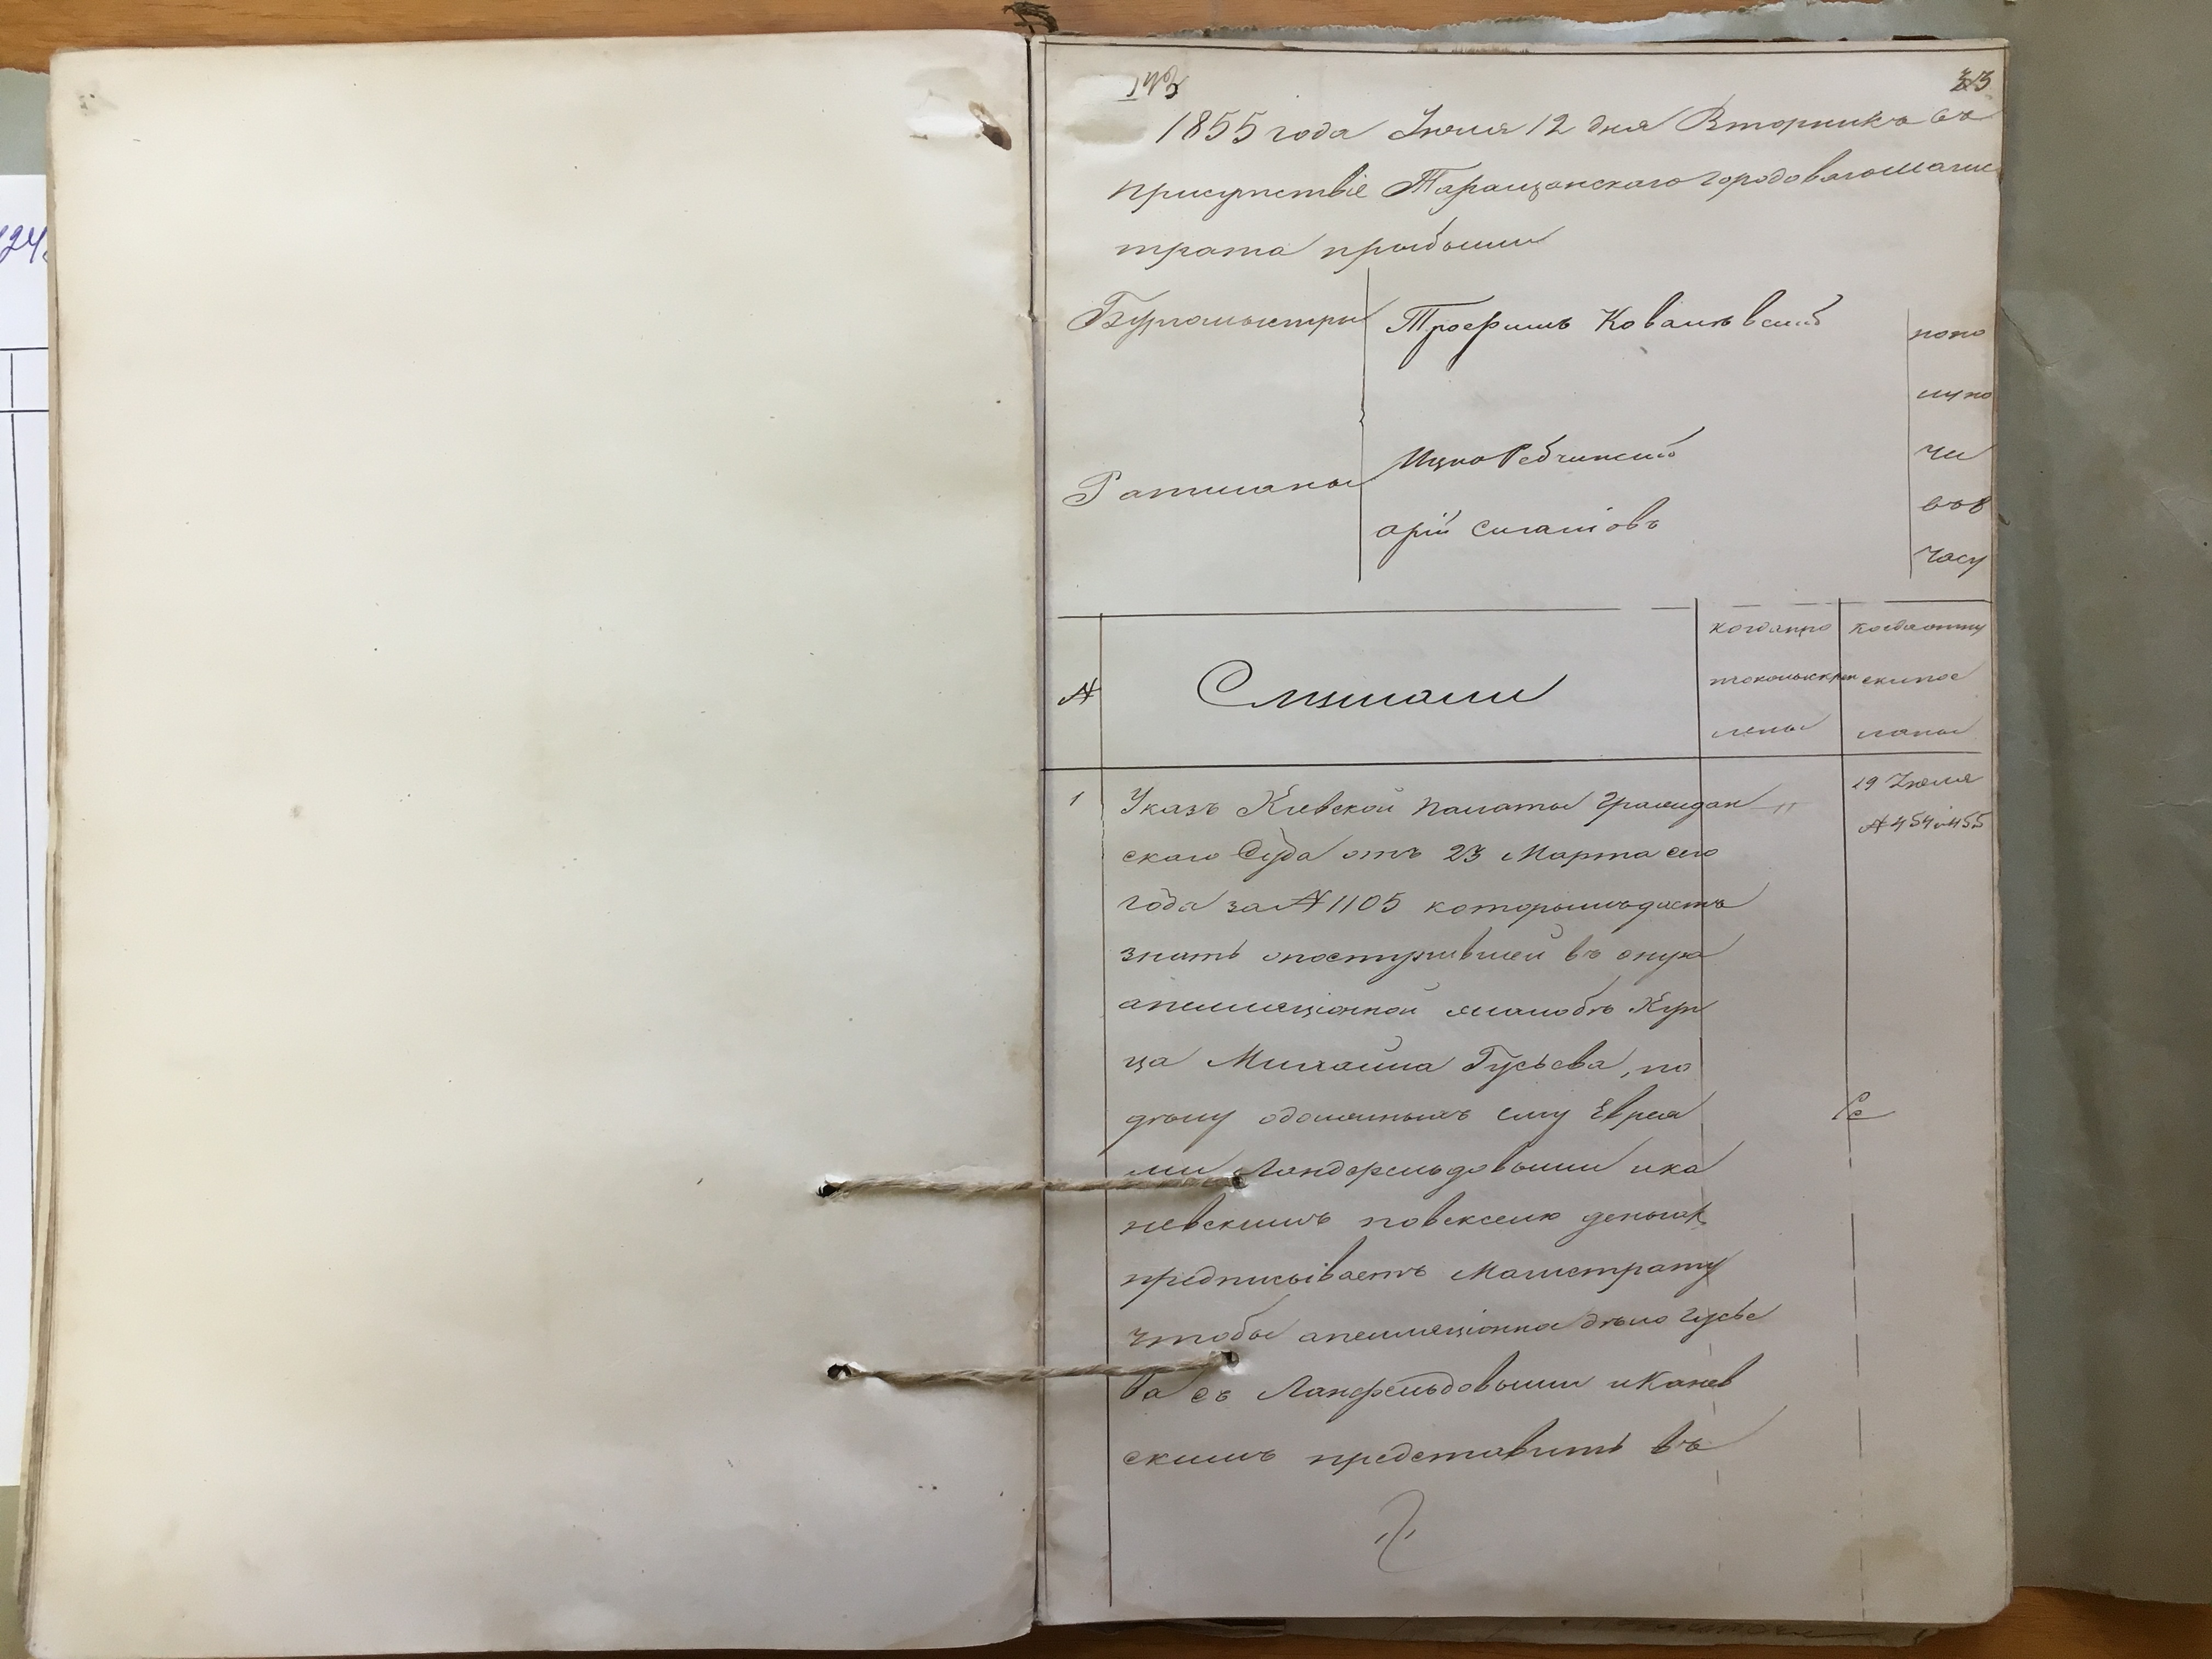 33
1855 года Іюля 12 дня Вторникъ въ
присутствіе Таращанскаго городоваго Магис
трата прибыли
Бургомистры
Трофимъ Ковалѣвскій
Ратманы
Ицко Ребчинскій
Арій
попо
луно
чи
въ 8
часу
№
Слушали
когда про
токолы скреп
лены
когда отпу
ски пос
ланы
1
Указъ Кіевской Палаты Граждан
скаго Суда отъ 23 Марта сего
года за № 1105 которымъ даетъ
знать о поступившей въ оную
апелляціонной жалобѣ Куп
ца Михайла Гусьева, по
дѣлу о должныхъ ему Еврея
ми Ландфельдовыми и Ка
невскимъ по векселю деньгах
предписываетъ Магистрату
чтобы апелляціонно дѣло Гусье
ва съ Ланфельдовыми и Канев
скимъ представить въ
19 Іюля
№ 454 и 455